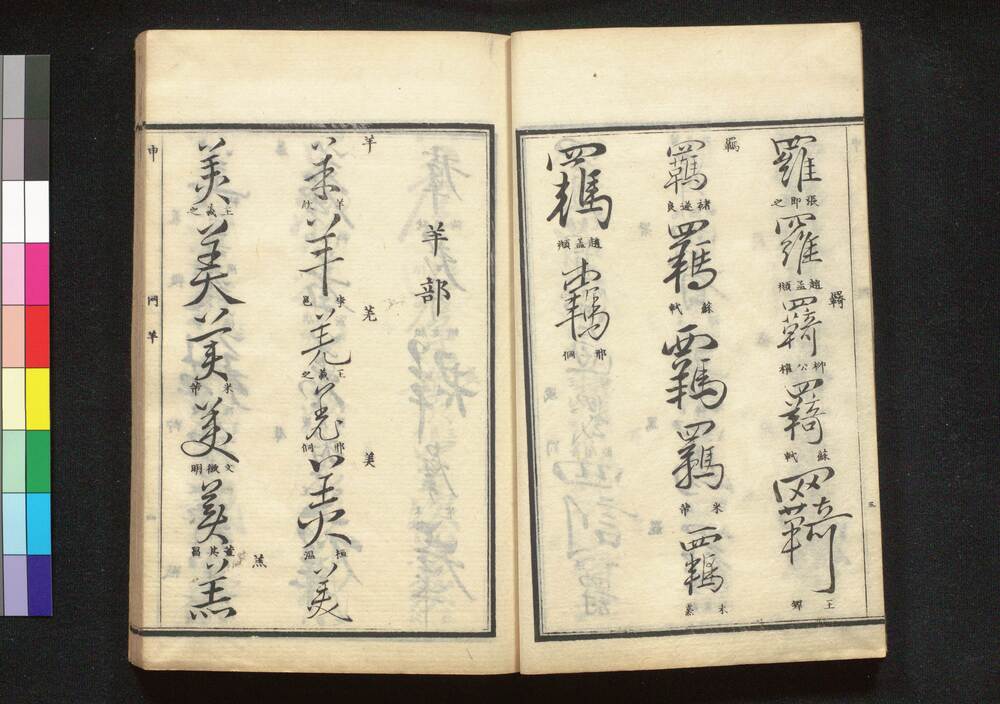 羅 張即之 羅 趙孟頫 羈 羇 柳公權 羇 蘇軾 羇 王鐸
羈 羈 褚遂良 羈 蘇軾 羈 羈 米芾 羈
羈 趙孟頫 羈 邢侗
三
羊部
羊 羊 羊欣 羊 李邕 羌 羌 王羲之 羌 邢侗 美 美 桓溫 美
美 王羲之 美 美 米芾 美 文徵明 美 董其昌 羔 羔
申
网 羊